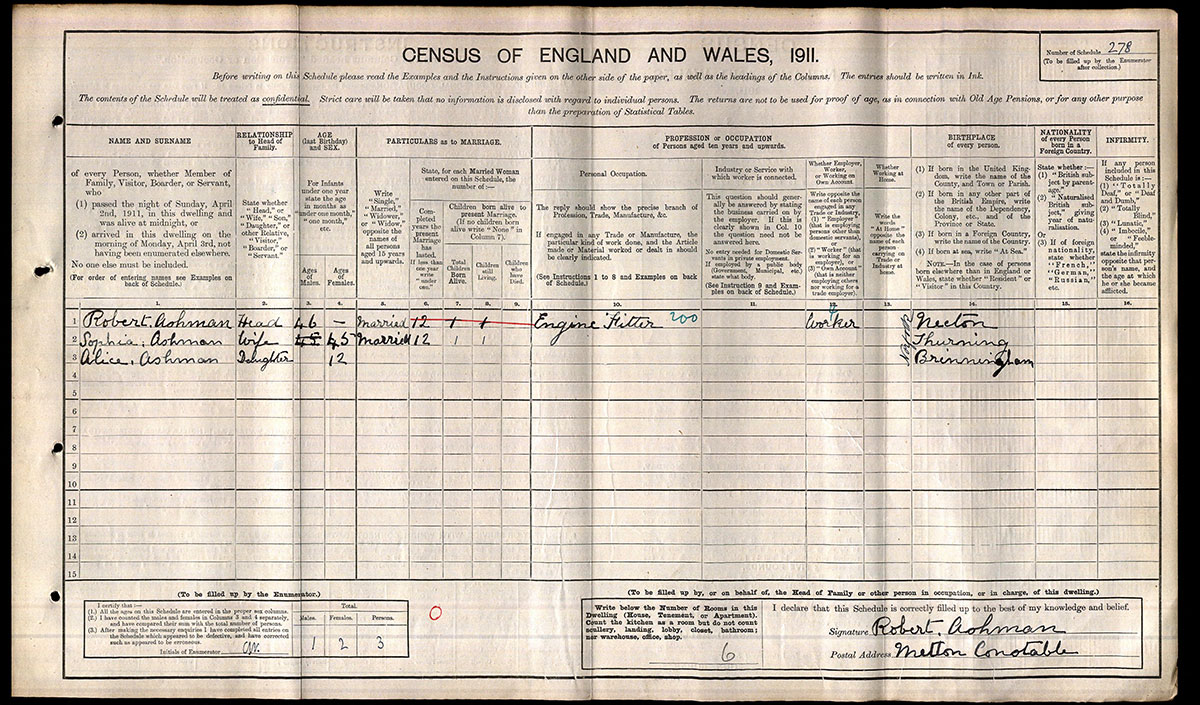 CENSUS OF ENGLAND AND WALES, 1911.
Number of Schedule 278
(To be filled up by the Enumerator
after collection.)
Before writing on this Schedule please read the Examples and the Instructions given on the other side of the paper, as well as the headings of the Columns. The entries should be written in Ink.
The contents of the Schedule will be treated as confidential. Strict care will be taken that no information is disclosed with regard to individual persons. The returns are not to be used for proof of age, as in connection with Old Age Pensions, or for any other purpose
than the preparation of Statistical Tables.
NAME AND SURNAME
of every Person, whether Member of
Family, Visitor, Boarder, or Servant,
who
(1) passed the night of Sunday, April
2nd, 1911, in this dwelling and
was alive at midnight, or
(2) arrived in this dwelling on the
morning of Monday, April 3rd, not
having been enumerated elsewhere.
No one else must be included.
(For order of entering names see Examples on
back of Schedule.)
RELATIONSHIP
to Head of
Family.
State whether
"Head," or
"Wife," "Son,"
"Daughter," or
other Relative,
"Visitor,"
"Boarder," or
"Servant."
AGE
(last Birthday)
and SEX.
For Infants
under one year
state the age
in months as
"under one month,"
"one month,"
etc.
Ages
of
Males.
Ages
of
Females.
PARTICULARS as to MARRIAGE.
Write
"Single,"
"Married,"
"Widower,"
or "Widow,"
opposite the
names of
all persons
aged 15 years
and upwards.
State, for each Married Woman
entered on this Schedule, the
number of :—
Com-
pleted
years the
present
Marriage
has
lasted.
If less than
one year
write
"under
one."
Children born alive to
present Marriage.
(If no children born
alive write "None" in
Column 7).
Total
Children
Born
Alive.
Children
still
Living.
Children
who
have
Died.
PROFESSION or OCCUPATION
of Persons aged ten years and upwards.
Personal Occupation.
The reply should show the precise branch of
Profession, Trade, Manufacture, &c.
If engaged in any Trade or Manufacture, the
particular kind of work done, and the Article
made or Material worked or dealt in should
be clearly indicated.
(See Instructions 1 to 8 and Examples on back
of Schedule.)
Industry or Service with
which worker is connected.
This question should gener-
ally be answered by stating
the business carried on by
the employer. If this is
clearly shown in Col. 10
the question need not be
answered here.
No entry needed for Domestic Ser-
vants in private employment.
If employed by a public body
(Government, Municipal, etc.)
state what body.
(See Instruction 9 and Exam-
ples on back of Schedule.)
Whether Employer,
Worker,
or Working on
Own Account.
Write opposite the
name of each person
engaged in any
Trade or Industry,
(1) "Employer"
(that is employing
persons other than
domestic servants),
or
(2) "Worker" (that
is working for an
employer), or
(3) "Own Account"
(that is neither
employing others
nor working for a
trade employer).
Whether
Working at
Home.
Write the
words
"At Home"
opposite the
name of each
person
carrying on
Trade or
Industry at
home.
BIRTHPLACE
of every person.
(1) If born in the United King-
dom, write the name of the
County, and Town or Parish.
(2) If born in any other part of
the British Empire, write
the name of the Dependency,
Colony, etc., and of the
Province or State.
(3) If born in a Foreign Country,
write the name of the Country.
(4) If born at sea, write "At Sea."
NOTE.—In the case of persons
born elsewhere than in England or
Wales, state whether "Resident" or
"Visitor" in this Country.
NATIONALITY
of every Person
born in a
Foreign Country.
State whether :—
(1) "British sub-
ject by parent-
age,"
(2) "Naturalised
British sub-
ject," giving
year of natu-
ralisation.
Or
(3) If of foreign
nationality,
state whether
"French,"
"German,"
"Russian,"
etc.
INFIRMITY.
If any person
included in this
Schedule is :—
(1) "Totally
Deaf," or "Deaf
and Dumb,"
(2) "Totally
Blind,"
(3) "Lunatic,"
(4) "Imbecile,"
or "Feeble-
minded,"
state the infirmity
opposite that per-
son's name, and
the age at which
he or she became
afflicted.
1. 2. 3. 4. 5. 6. 7. 8. 9. 10. 11. 12. 13. 14. 15. 16.
1 Robert. Ashman Head 46 – Married 12 1 1 Engine Fitter 200 Worker Necton
2 Sophia. Ashman Wife 45 45 Married 12 1 1 Thurning
3 Alice. Ashman Daughter 12 Brinningham
Norfolk
4
5
6
7
8
9
10
11
12
13
14
15
(To be filled up by the Enumerator.)
I certify that :—
(1.) All the ages on this Schedule are entered in the proper sex columns.
(2.) I have counted the males and females in Columns 3 and 4 separately,
and have compared their sum with the total number of persons.
(3.) After making the necessary enquiries I have completed all entries on
the Schedule which appeared to be defective, and have corrected
such as appeared to be erroneous.
Initials of Enumerator
Total.
Males. Females. Persons.
1 2 3
(To be filled up by, or on behalf of, the Head of Family or other person in occupation, or in charge, of this dwelling.)
Write below the Number of Rooms in this
Dwelling (House, Tenement, or Apartment).
Count the kitchen as a room but do not count
scullery, landing, lobby, closet, bathroom;
nor warehouse, office, shop.
6
I declare that this Schedule is correctly filled up to the best of my knowledge and belief.
Signature Robert. Ashman
Postal Address Melton Constable